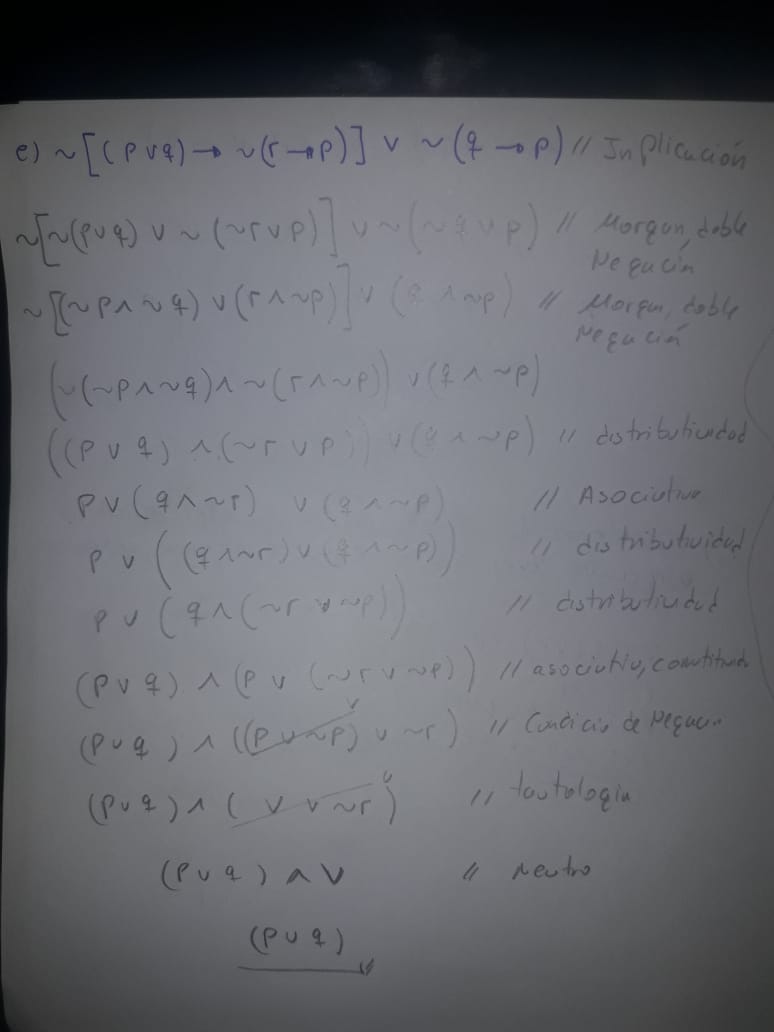 e) ~[(p∨q)→ ~(r→p)] ∨ ~(q→p) // Inplicación
~[~(p∨q) ∨ ~(~r∨p)] ∨ ~(~q∨p) // Morgan, doble
Negución
~[(~p∧~q) ∨ (r∧~p)] ∨ (q∧~p) // Morgan, doble
Negución
(~(~p∧~q)∧ ~(r∧~p)) ∨ (q∧~p)
((p∨q) ∧ (~r∨p)) ∨ (q∧~p) // distributividad
p∨(q∧~r) ∨ (q∧~p) // Asociutiva
p ∨ ((q∧~r) ∨ (q∧~p)) // distributividad
p ∨ (q∧(~r∨~p)) // distributividad
(p∨q) ∧ (p∨ (~r∨~p)) // asociutiv,
V
(p∨q) ∧ ((p∨~p) ∨ ~r) // de
V
(p∨q) ∧ ( V ∨ ~r) // tautologia
(p∨q) ∧ V // neutro
(p∨q)